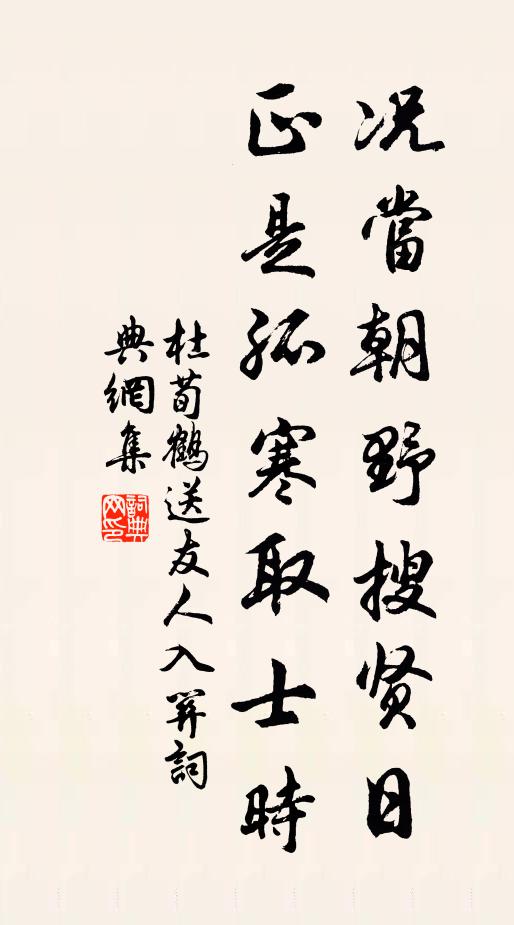 况當朝野搜贤日
正是孤寒取士時
杜荀鶴送友人入關詞
典網集
詞典
网印